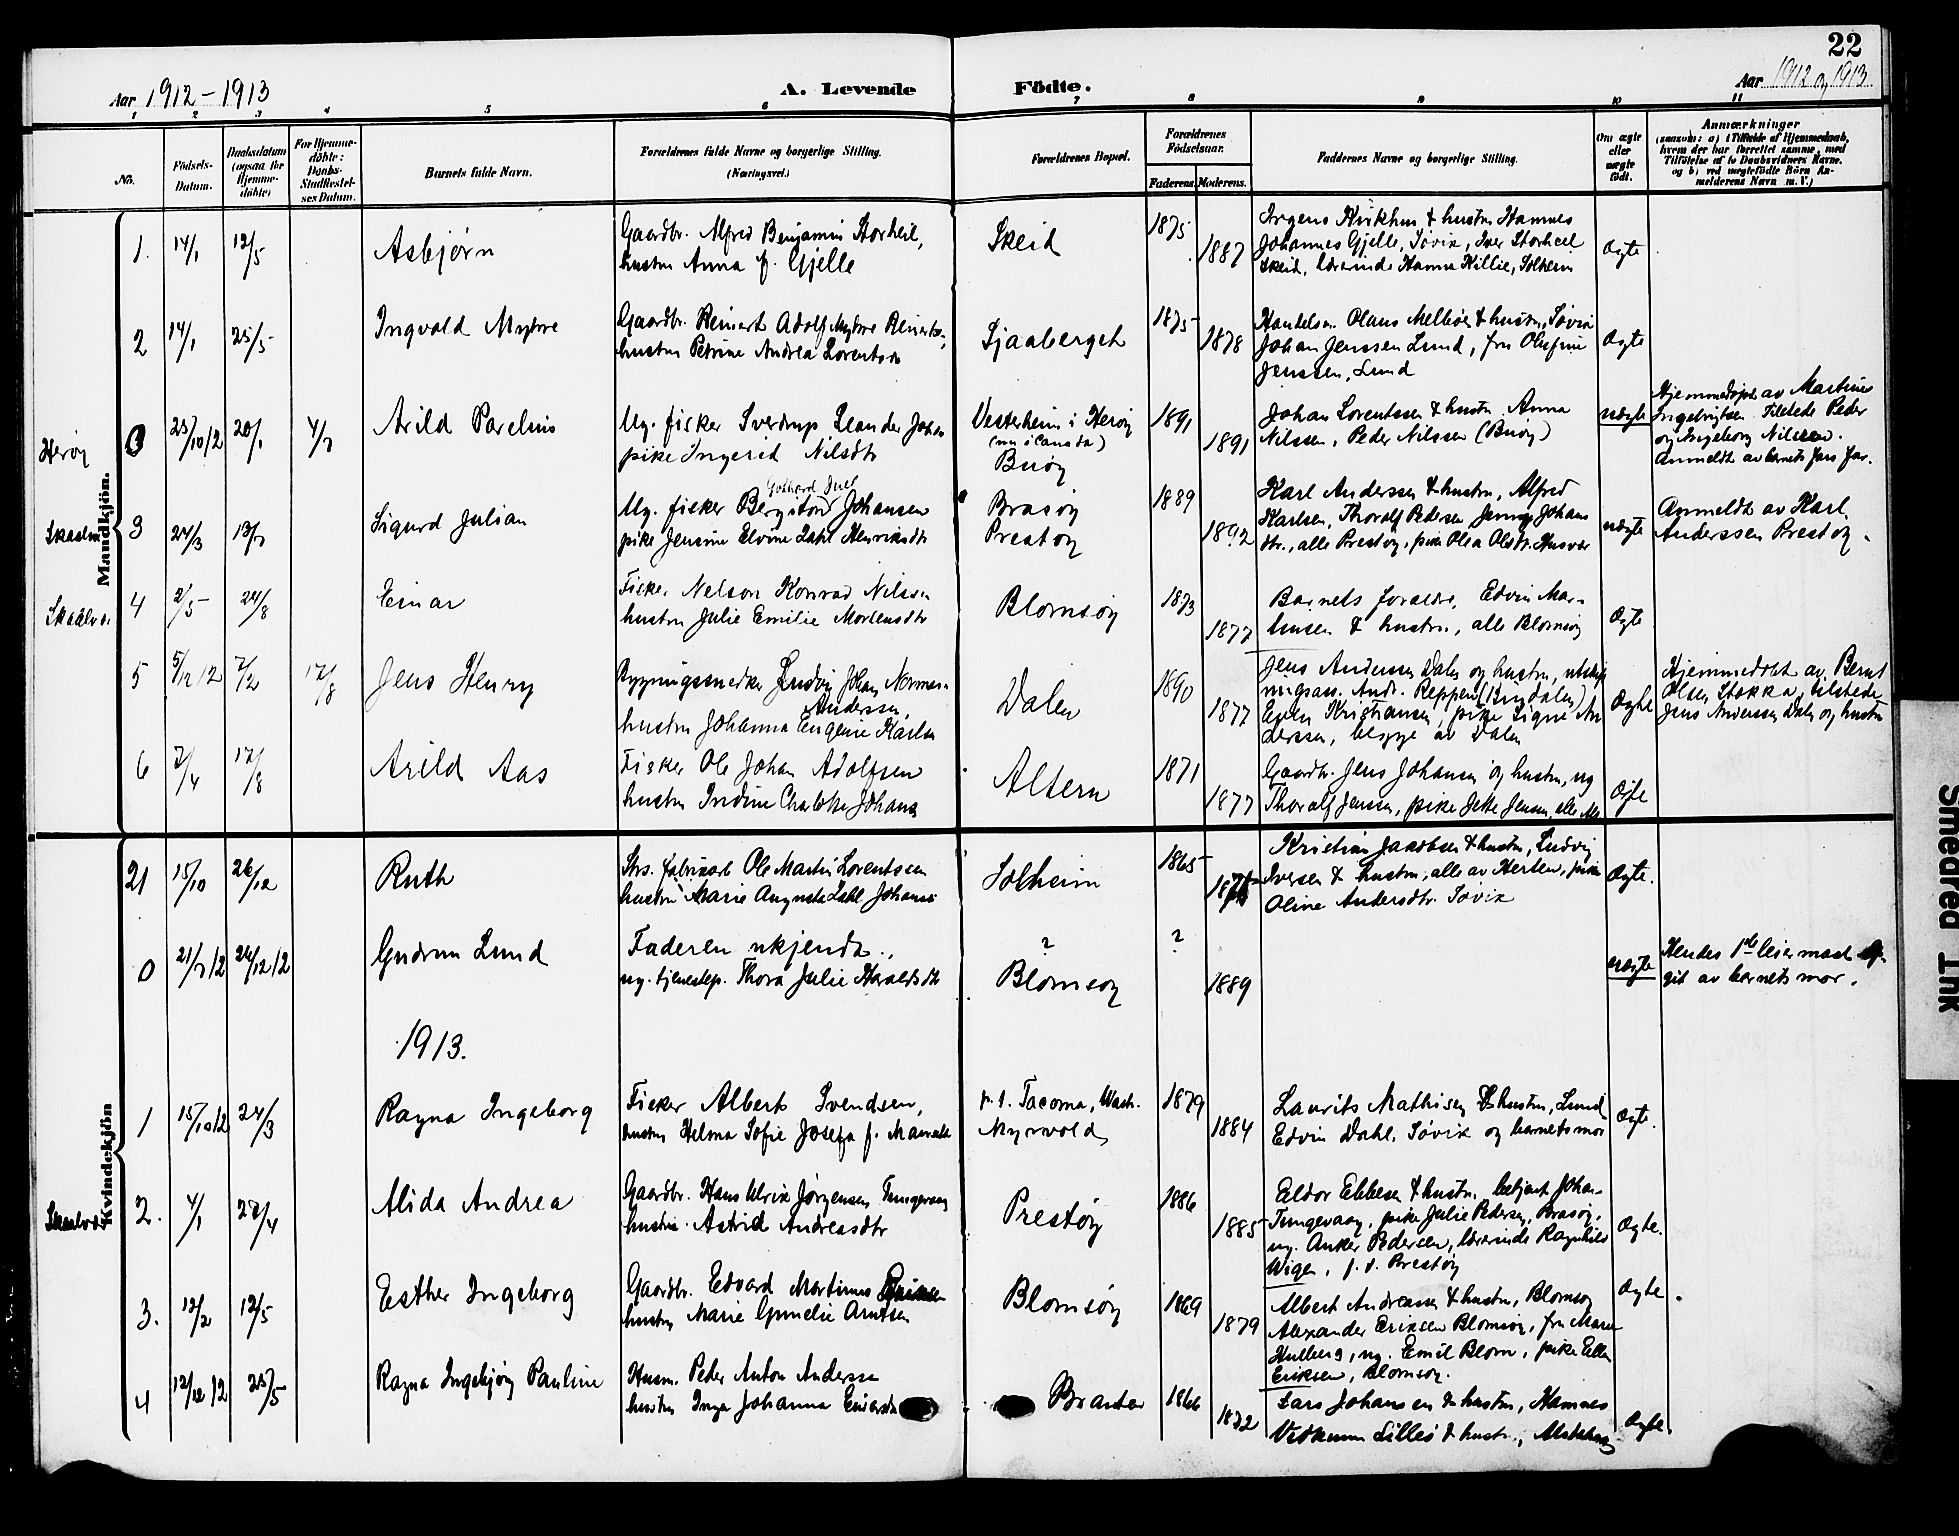 22
Aar 1912 - 1913
A. Levende
Födte.
Aar 1912 og 1913
1 2 3 4 5 6 7 8 9 10 11
No.
Födsels-
Datum.
Daabsdatum
(ogsaa for
Hjemme-
döbte)
For Hjemme-
döbte:
Daabs-
Stadfæstel-
ses Datum.
Barnets fulde Navn.
Forældrenes fulde Navne og borgerlige Stilling.
(Næringsvei.)
Forældrenes Bopæl.
Forældrenes
Födselsaar.
Faderens. Moderens.
Faddernes Navne og borgerlige Stilling.
Om ægte
eller
uægte
födt.
Anmærkninger
(saasom: a) i Tilfælde af Hjemmedaab,
hvem der har forrettet samme, med
Tilföielse af to Daabsvidners Navne,
og b) ved uægtefödte Börn An-
melderens Navn m. V.)
Mandkjön.
1. 14/1 12/5 Asbjørn
Gaardbr. Alfred Benjamin Storheil,
hustru Anna f. Gjelle
Skeid
1875
1887
Kvikhus & hustru Hamnes
Johannes Gjelle, Søvik, Iver Storheil
Skeid, lærerinde Hanna Killie, Solheim
Ægte
2 14/1 25/5 Ingvald Myhre
Gaardbr. Reinert Adolf Myhre
hustru Petrine Andrea Lorentsdtr
Sjaaberget
1875
1878
Handelsm. Olaus Melbøe & hustru, Søvik
Johan Jenssen Lund, fru Olufine
Jenssen, Lund
Ægte
Herøy
0 25/10 12 20/1 4/7 Arild Parelius
Ug. fisker Sverdrup Leander Johan
pike Ingerid Nilsdtr
Vesterheim i Herøy
(nu i Canada)
Buøy
1891
1891
Johan Lorentssen & hustru Anna
Nilssen, Peder Nilssen (Buøy)
uægte
Hjemmedøpt av Martinus
Ingebrigtsen Tilstede Peder
og Ingeborg Nilssen.
Anmeldt av barnets fars far.
3 24/3 13/7 Sigurd Julian
Gothard Juel
Ug. fisker Bergiton Johansen
pike Jensine Elvine Dahl Henriksdtr
Brasøy
Prestøy
1889
1892
Karl Anderssen & hustru, Alfred
Karlsen, Thoralf Pedersen Jenny Johans
dtr., alle Prestøy, pike Olea Olsdtr. Husvær
uægte
Anmeldt av Karl
Anderssen Prestøy.
4 2/5 24/8 Einar
Fisker Nelson Konrad Nilssen
hustru Julie Emilie Mortensdtr
Blomsøy
1873
1877
Barnets forældre, Edvin Mar-
tinsen & hustru, alle Blomsøy
Ægte
5 5/12 12 7/2 17/8 Jens Henry
Bygningssnedker Ludvig Johan Norman
Anderssen,
hustru Johanna Eugenie Karlsen
Dalen
1890
1877
Jens Anderssen Dalen og hustru, utskift
ningsass. Andr. Reppen (Bugdalen)
Kristiansen, pike Signe An
derssen, begge av Dalen
Ægte
Hjemmedøbt av Bernt
Olsen Stokka, tilstede
Jens Anderssen Dalen og hustru
6 7/4 17/8 Arild Aas
Fisker Ole Johan Adolfsen
hustru Indine Charlotte Johans
Altern
1871
1877
Gaardbr. Jens Johansen og hustru, ug
Thoralf Jenssen, pike Jette Jensen, alle Alt
Ægte
Kvindekjön
21 15/10 26/12 Ruth
Ole Martin Lorentssen
hustru Marie Augusta Dahl Johans
Solheim
1865
Kristian Jakobsen & hustru, Ludvig
Iversen & hustru, alle av Herten, pike
Oline Andersdtr. Søvik
Ægte.
0 21/7 12 26/12 12 Gudrun Lund
Faderen ukjendt.,
ug. tjenestep. Thora Julie Haraldsdtr
?
Blomsøy
?
1889
uægte
Hendes 1ste leiermaal op-
git av barnets mor.
1913.
1 15/10 12 24/3 Ragna Ingeborg
Fisker Albert Svendsen,
hustru Helma Sofie Josefa f.
Tacoma, Wash.
Myrvold
1879
1884
Laurits Mathisen & hustru, Lund
Edvin Dahl, Søvik og barnets mor
Ægte.
2. 4/1 27/4 Alida Andrea
Gaardbr. Hans Ulrik Jørgensen Tungevaag
hustru Astrid Andreasdtr
Prestøy
1886
1885
Eldor Ebbesen & hustru, betjent Johan
Tungevaag, pike Julie Pedersen, Brasøy,
ug. Anker Pedersen, lærerinde Ragnhild
Wigen, p. t. Prestøy
Ægte.
3. 12/2 12/5 Esther Ingeborg
Gaardbr. Edvard Martinus Eriksen
hustru Marie Gunelie Arntsen
Blomsøy
1869
1879
Albert Andreassen & hustru, Blomsøy
Alexander Eriksen Blomsøy, fru Marie
Hulberg, ug. Emil Blom, pike Ella
Eriksen, Blomsøy.
Ægte
4 12/12 12 25/5 Ragna Ingebjørg Pauline
Husm. Peder Anton Anderssen
hustru Inga Johanna
Branter
1866
1872
Lars Johansen & hustru, Hamnes
Vedkunn Lillés & hustru, Alstahaug
Ægte.
Smeared Ink